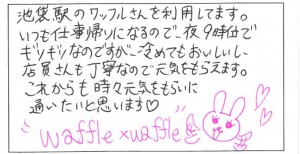 池袋駅のワッフルさんを利用してます。
いつも仕事帰りになるので、夜9時位で
ギリギリなのですが…冷めてもおいしいし、
店員さんも丁寧なので元気をもらえます。
これからも時々元気をもらいに
通いたいと思います♡
waffle×waffle